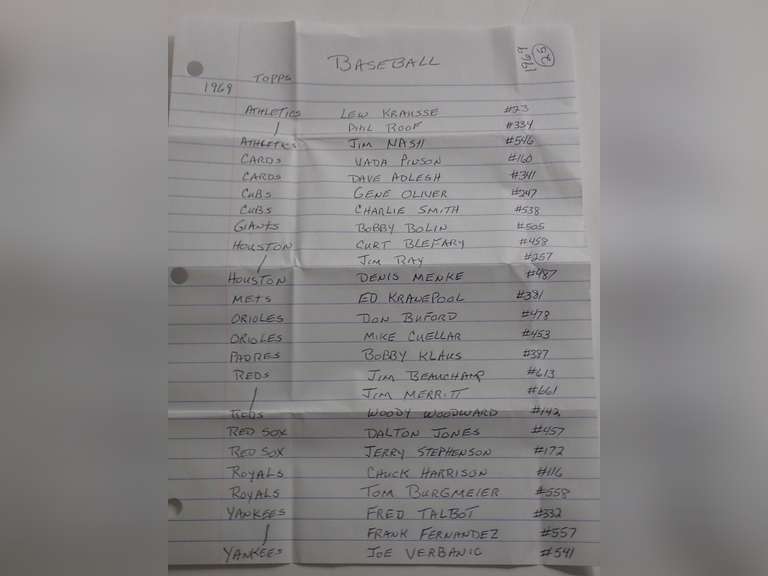 BASEBALL
1969 25
1969 TOPPS
ATHLETICS LEW KRAUSSE #23
PHIL ROOF #334
ATHLETICS JIM NASH #546
CARDS VADA PINSON #160
CARDS DAVE ADLESH #341
CUBS GENE OLIVER #247
CUBS CHARLIE SMITH #538
GIANTS BOBBY BOLIN #505
HOUSTON CURT BLEFARY #458
JIM RAY #257
HOUSTON DENIS MENKE #487
METS ED KRANEPOOL #381
ORIOLES DON BUFORD #478
ORIOLES MIKE CUELLAR #453
PADRES BOBBY KLAUS #387
REDS JIM BEAUCHAMP #613
JIM MERRITT #661
REDS WOODY WOODWARD #142
RED SOX DALTON JONES #457
RED SOX JERRY STEPHENSON #172
ROYALS CHUCK HARRISON #116
ROYALS TOM BURGMEIER #558
YANKEES FRED TALBOT #332
FRANK FERNANDEZ #557
YANKEES JOE VERBANIC #541